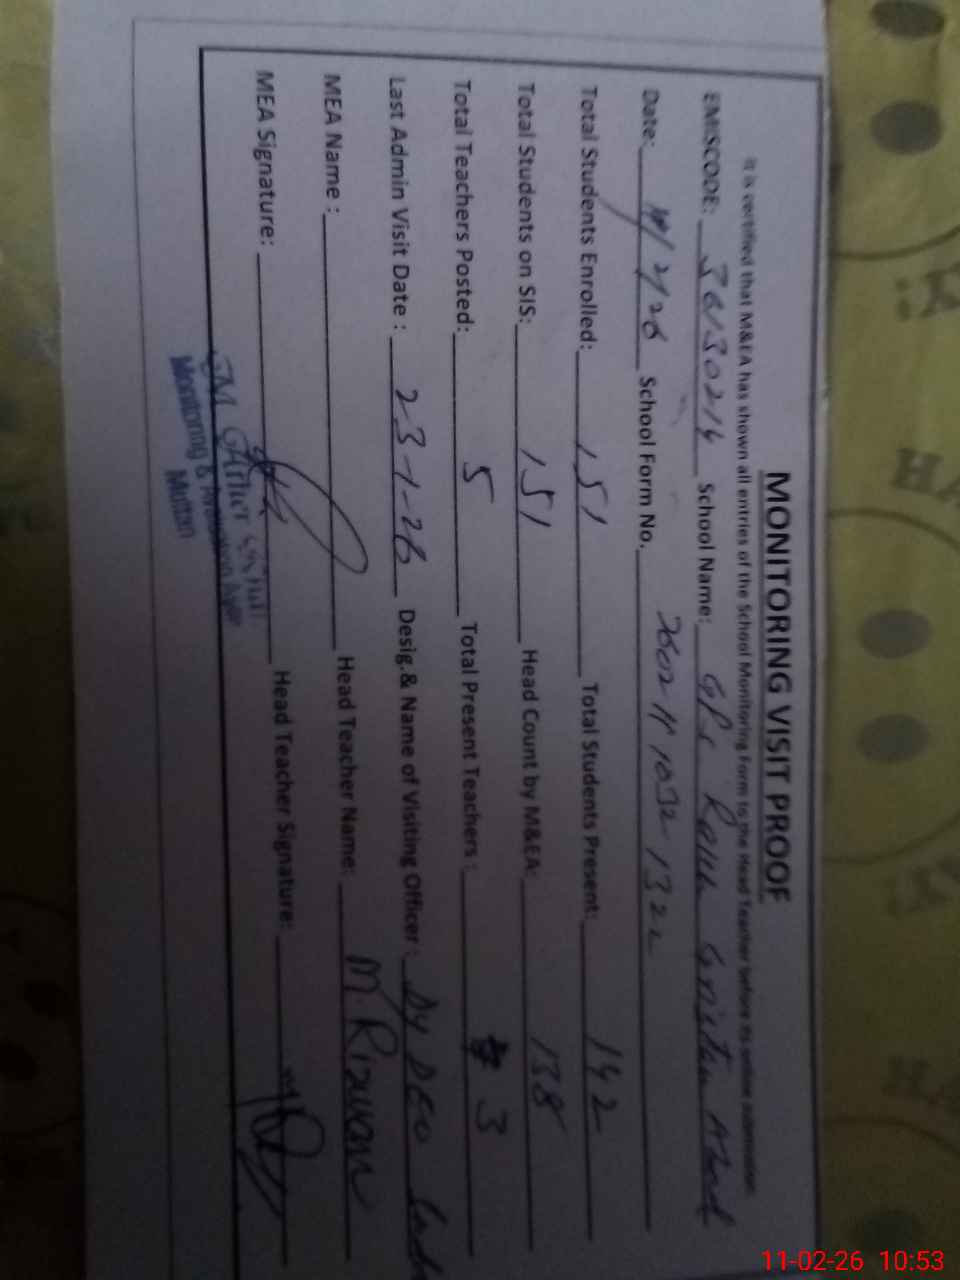 MONITORING VISIT PROOF
It is certified that M&EA has shown all entries of the School Monitoring Form to the Head Teacher before its online submission.
EMISCODE: 36130214 School Name: GPS
Date: /2/26 School Form No. 2602111032-1322
Total Students Enrolled: 151 Total Students Present: 142
Total Students on SIS: 151 Head Count by M&EA: 138
Total Teachers Posted: 5 Total Present Teachers: 3
Last Admin Visit Date: 23-1-26 Desig.& Name of Visiting Officer: Dy DEO
MEA Name: Head Teacher Name: M. Rizwan
MEA Signature: Head Teacher Signature:
Monitoring &
Multan
11-02-26 10:53